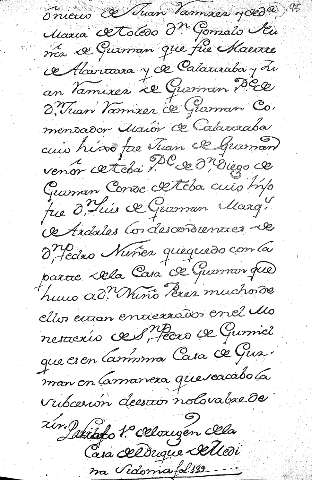 nietto de Juan Ramirez y de dª
Maria de toledo dⁿ Gonsalo Nu
ñez de Guzman que fue Maestre
de Alcantara y de Calatraba y Ju
an Ramirez de Guzman Pᵉ de
dⁿ Juan Ramirez de Guzman Co
mendador Maior de Calatraba
cuio hixo fue Juan de Guzman
senõr de teba Pᵉ de dⁿ Diego de
Guzman Conde de teba cuio hijo
fue dⁿ Luis de Guzman Marqˢ
de Ardales los descendientes de
dⁿ Pedro Nuñez que quedo con la
parte de la Casa de Guzman que
huuo a dⁿ Nuño Perez muchos de
ellos estan enterrados en el Mo
nesterio de Sⁿ Pedro de Gumiel
que es en la misma Casa de Guz
man en la manera que se acabo la
subcesion de estos no lo vabre de
zir.
Parrafo 1º del origen de la
Casa del Duque de Medi
na Sidonia fol 199